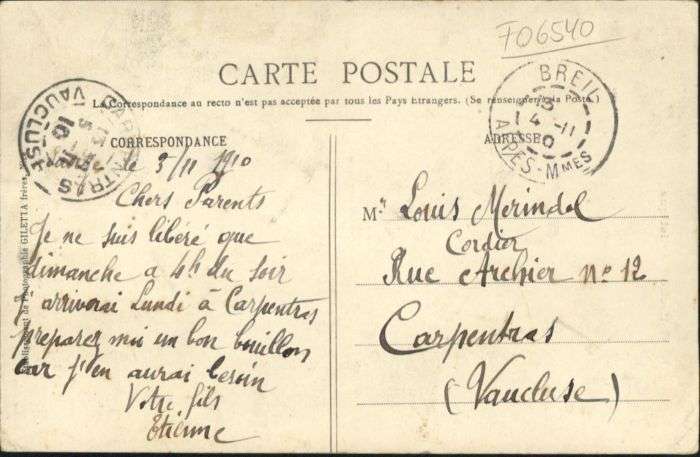 F06540
CARTE POSTALE
La Correspondance au recto n'est pas acceptée par tous les Pays Etrangers. (Se renseigner à la Poste)
CORRESPONDANCE
ADRESSE
BREIL
4 -11
10
ALPES-Mmes
CARPENTRAS
VAUCLUSE
le 3/11 1910
Chers Parents
Je ne suis libéré que
dimanche a 4h du soir
J'arriverai Lundi à Carpentras
preparez moi un bon bouillon
car j'en aurai besoin
Votre fils
Etienne
Mr Louis Merindol
Cordier
Rue Archier No 12
Carpentras
(Vaucluse)
Etablissement de Photographie GILETTA frères